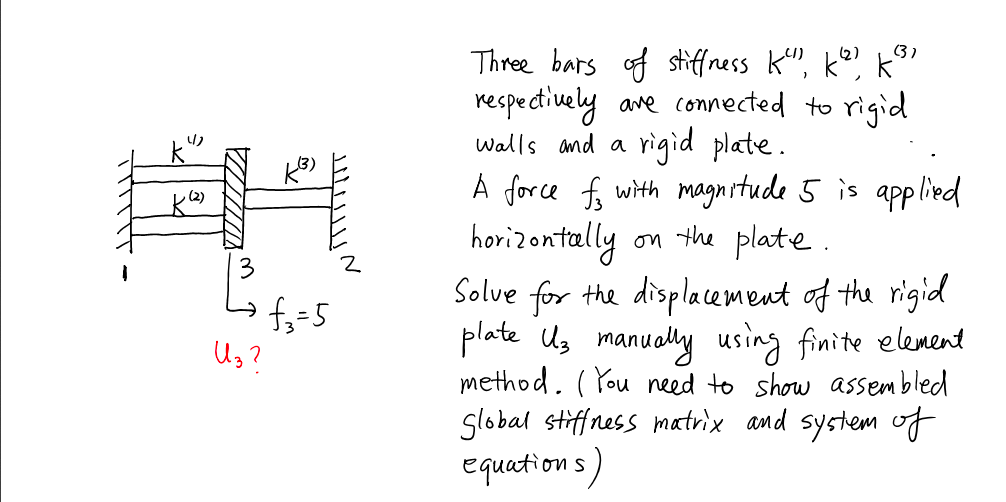 K⁽¹⁾
K⁽²⁾
K⁽³⁾
1
3
2
f₃=5
U₃?
Three bars of stiffness K⁽¹⁾, K⁽²⁾, K⁽³⁾
respectively are connected to rigid
walls and a rigid plate.
A force f₃ with magnitude 5 is applied
horizontally on the plate.
Solve for the displacement of the rigid
plate U₃ manually using finite element
method. (You need to show assembled
global stiffness matrix and system of
equations)